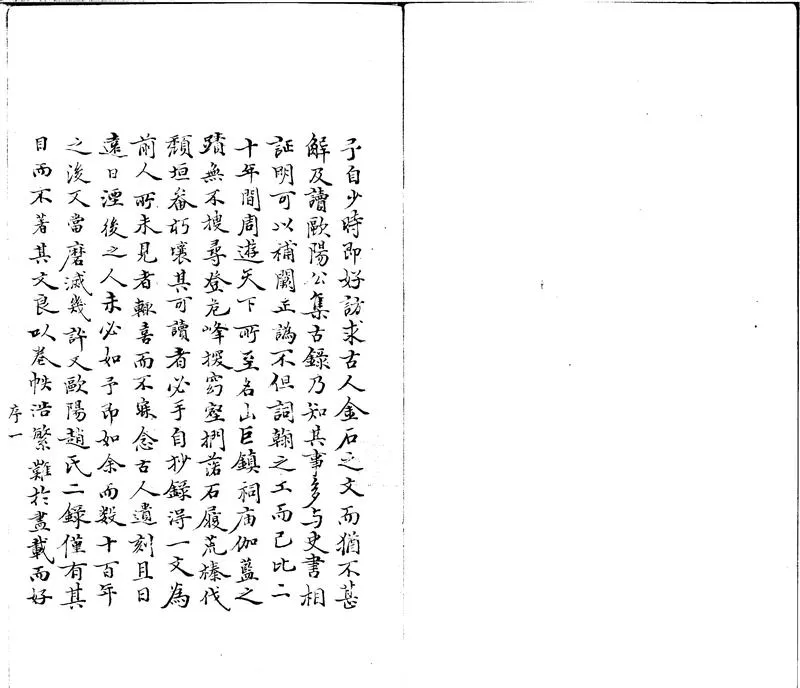 予自少時即好訪求古人金石之文而猶不甚
解及讀歐陽公集古錄乃知其事多与史書相
証明可以補闕正譌不但詞翰之工而已比二
十年間周遊天下所至名山巨鎮祠庙伽藍之
蹟無不搜尋登危峰探窈壑捫落石履荒榛伐
頹垣畚朽壤其可讀者必手自抄錄淂一文為
前人所未見者輒喜而不寐念古人遺刻且日
遠日湮後之人未必如予即如余而数十百年
之後又當磨滅幾許又歐陽趙氏二錄僅有其
目而不著其文良以卷帙浩繁難於盡載而好
序一